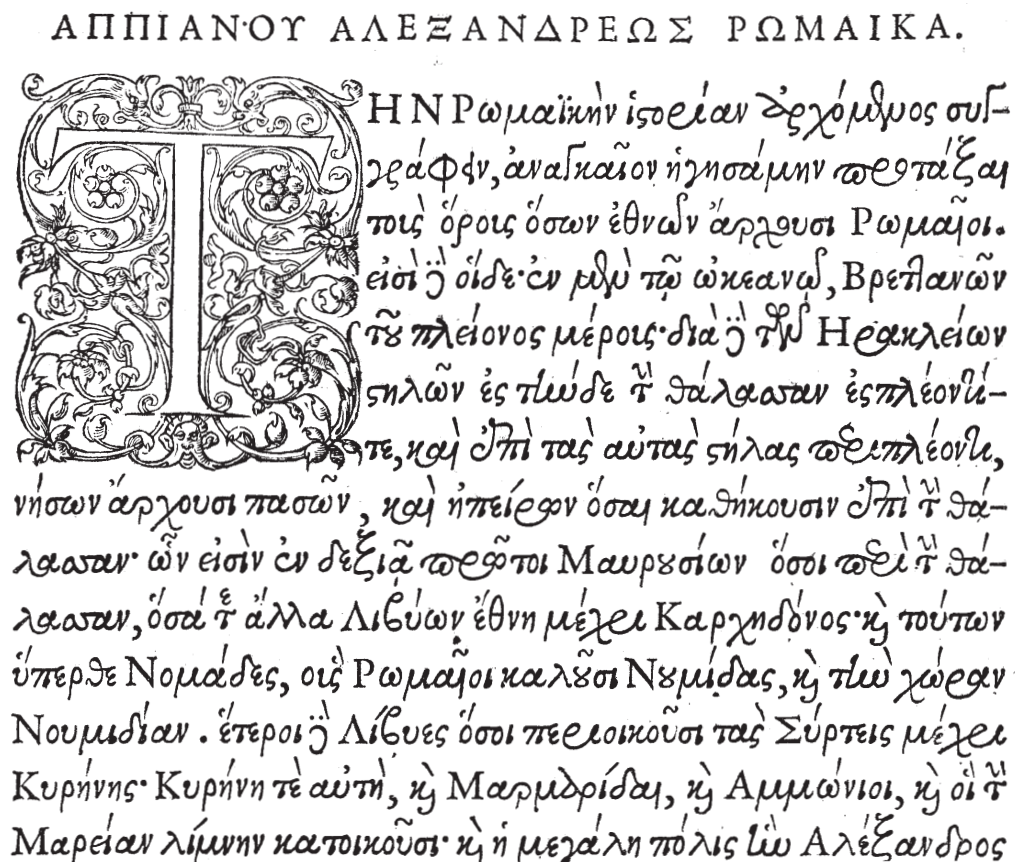 ΑΠΠΙΑΝΟΥ ΑΛΕΞΑΝΔΡΕΩΣ ΡΩΜΑΙΚΑ.
ΤΗΝ Ρωμαϊκὴν ἱστορίαν ἀρχόμενος συγ-
γράφειν, ἀναγκαῖον ἡγησάμην προτάξαι
τοὺς ὅρους ὅσων ἐθνῶν ἄρχουσι Ρωμαῖοι.
εἰσὶ δὲ οἵδε· ἐν μὲν τῷ ὠκεανῷ, Βρεττανῶν
τοῦ πλείονος μέρους· διὰ δὲ τῶν Ηρακλείων
στηλῶν ἐς τήνδε τὴν θάλασσαν ἐσπλέοντί-
τε, καὶ ἐπὶ τὰς αὐτὰς στήλας περιπλέοντι,
νήσων ἄρχουσι πασῶν, καὶ ἠπείρων ὅσαι καθήκουσιν ἐπὶ τὴν θά-
λασσαν· ὧν εἰσὶν ἐν δεξιᾷ πρῶτοι Μαυρουσίων ὅσοι περὶ τὴν θά-
λασσαν, ὅσά τε ἄλλα Λιβύων ἔθνη μέχρι Καρχηδόνος· καὶ τούτων
ὕπερθε Νομάδες, οὓς Ρωμαῖοι καλοῦσι Νουμίδας, καὶ τὴν χώραν
Νουμιδίαν. ἕτεροι δὲ Λίβυες ὅσοι περιοικοῦσι τὰς Σύρτεις μέχρι
Κυρήνης· Κυρήνη τὲ αὐτὴ, καὶ Μαρμαρίδαι, καὶ Αμμώνιοι, καὶ οἳ τὴν
Μαρείαν λίμνην κατοικοῦσι· καὶ ἡ μεγάλη πόλις ἣν Αλέξανδρος